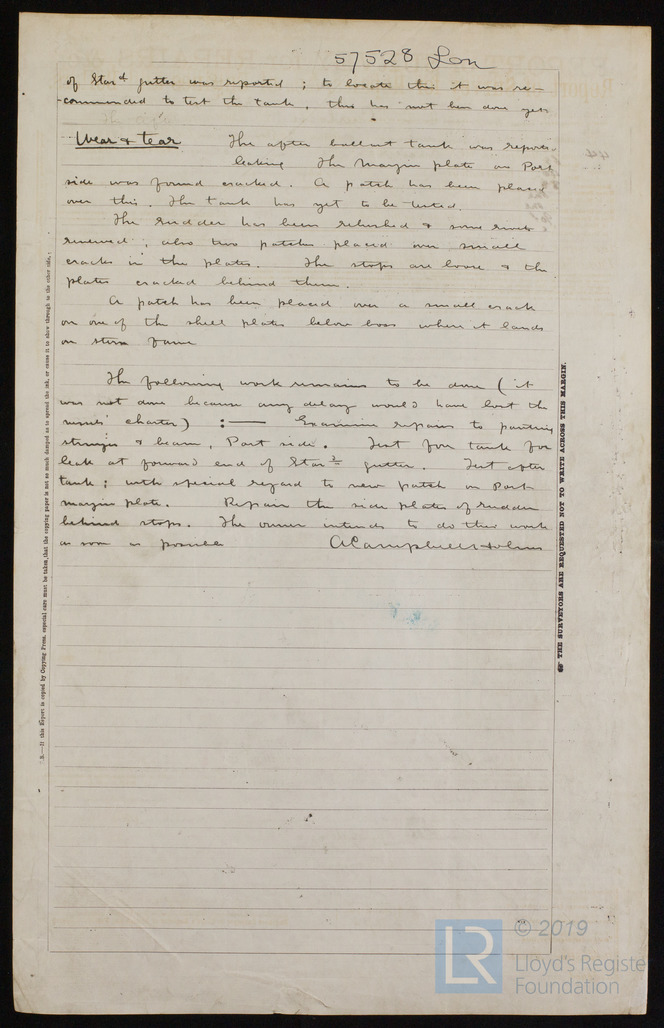 57528 Lon
of Starᵈ gutter was reported ; to locate this it was re-
-commended to test the tank, this has not been done yet
Wear & tear The after ballast tank was reported
leaking The margin plate on Port
side was found cracked. A patch has been placed
over this. The tank has yet to be tested.
The rudder has been rebushed & some rivets
renewed ; also two patches placed over small
cracks in the plates. The stops are loose & the
plates cracked behind them.
A patch has been placed over a small crack
on one of the shell plates below boss where it lands
on stern frame
The following work remains to be done ( it
was not done because any delay would have lost the
vessels' charter ) :— Examine repairs to panting
stringer & beam, Port side. Test fore tank for
leak at forward end of Starᵈ gutter. Test after
tank ; with special regard to new patch on Port
margin plate. Repair the side plates of rudder
behind stops. The owner intends to do this work
as soon as possible A Campbell Holms
.B.—If this Report is copied by Copying Press, especial care must be taken that the copying paper is not so much damped as to spread the ink, or cause it to show through to the other side.
THE SURVEYORS ARE REQUESTED NOT TO WRITE ACROSS THIS MARGIN.
LR © 2019
Lloyd's Register
Foundation